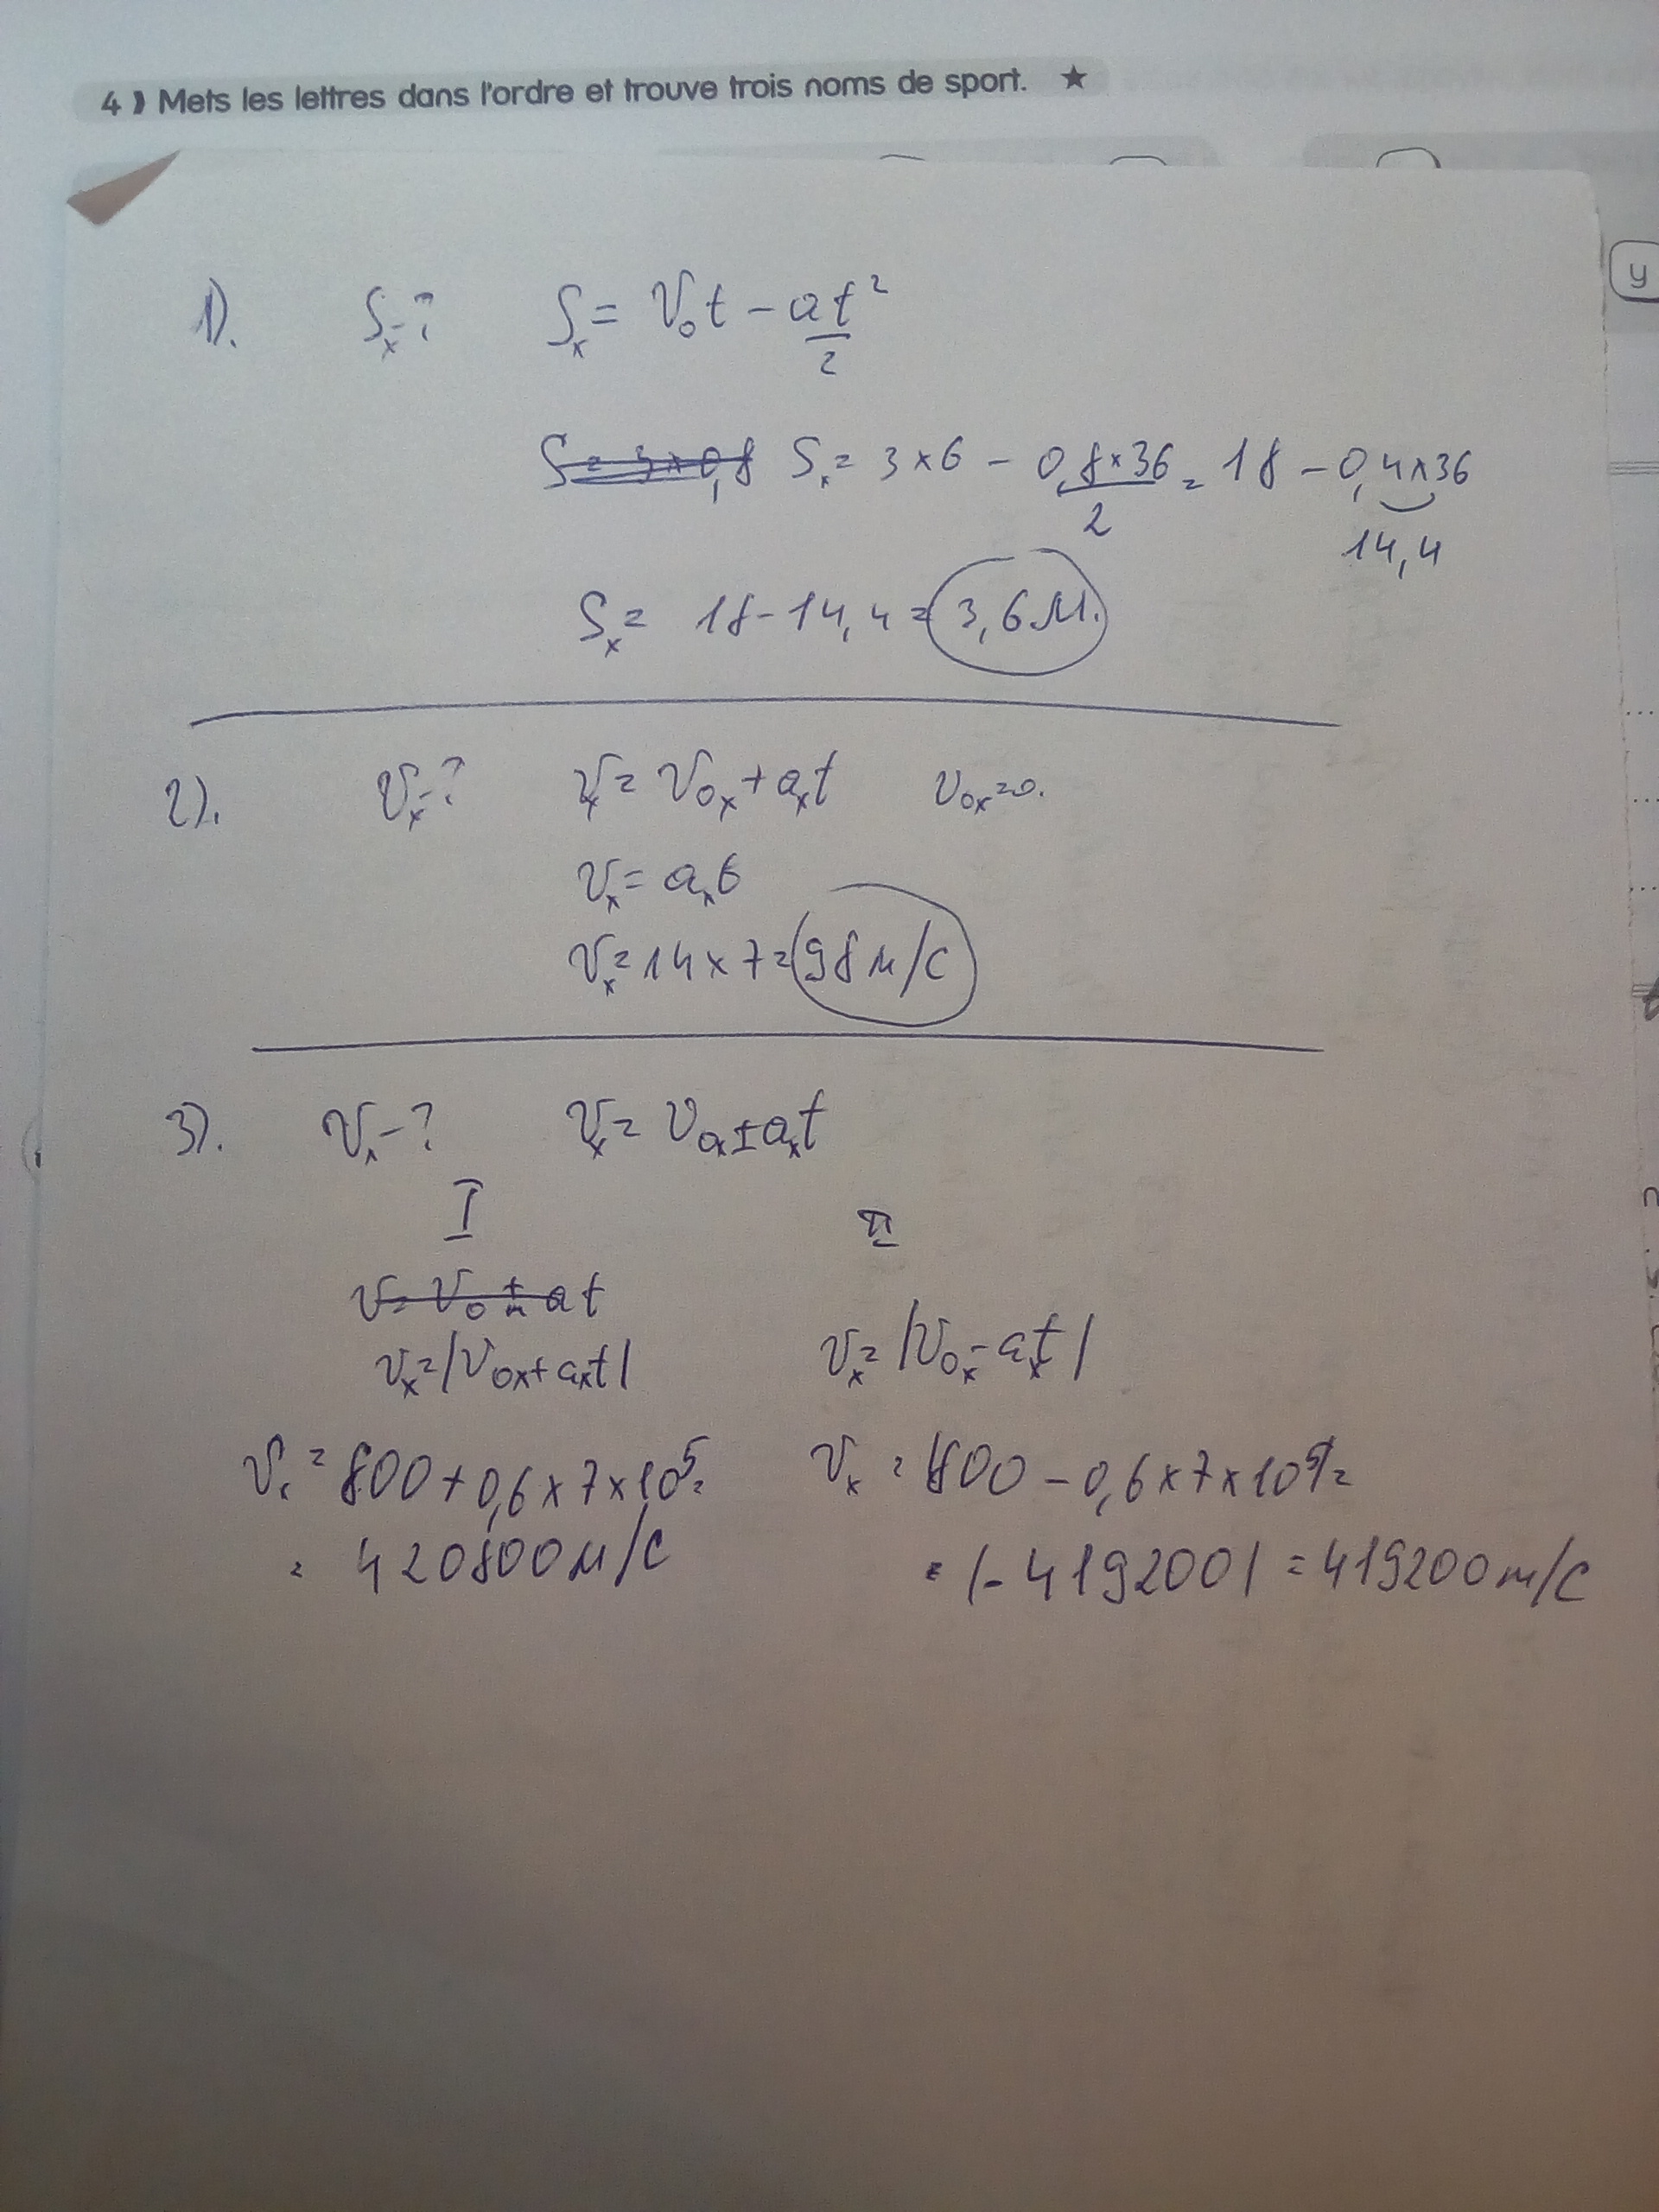 4 ) Mets les lettres dans l'ordre et trouve trois noms de sport. ★
y
1). Sx-? Sx = V₀t - at²/2
S = 3 × 0,8 Sx = 3 × 6 - 0,8 × 36/2 = 18 - 0,4 × 36
14,4
Sx = 18 - 14,4 = 3,6 м.
2). Vx-? Vx = V₀x + axt V₀x = 0.
Vx = axt
Vx = 14 × 7 = 98 м/с
3). Vx-? Vx = V₀x ± axt
I II
V = V₀ ± at
Vx = |V₀x + axt| Vx = |V₀x - axt|
Vx = 800 + 0,6 × 7 × 10⁵ = Vx = |800 - 0,6 × 7 × 10⁵| =
= 420800 м/с = |-419200| = 419200 м/с